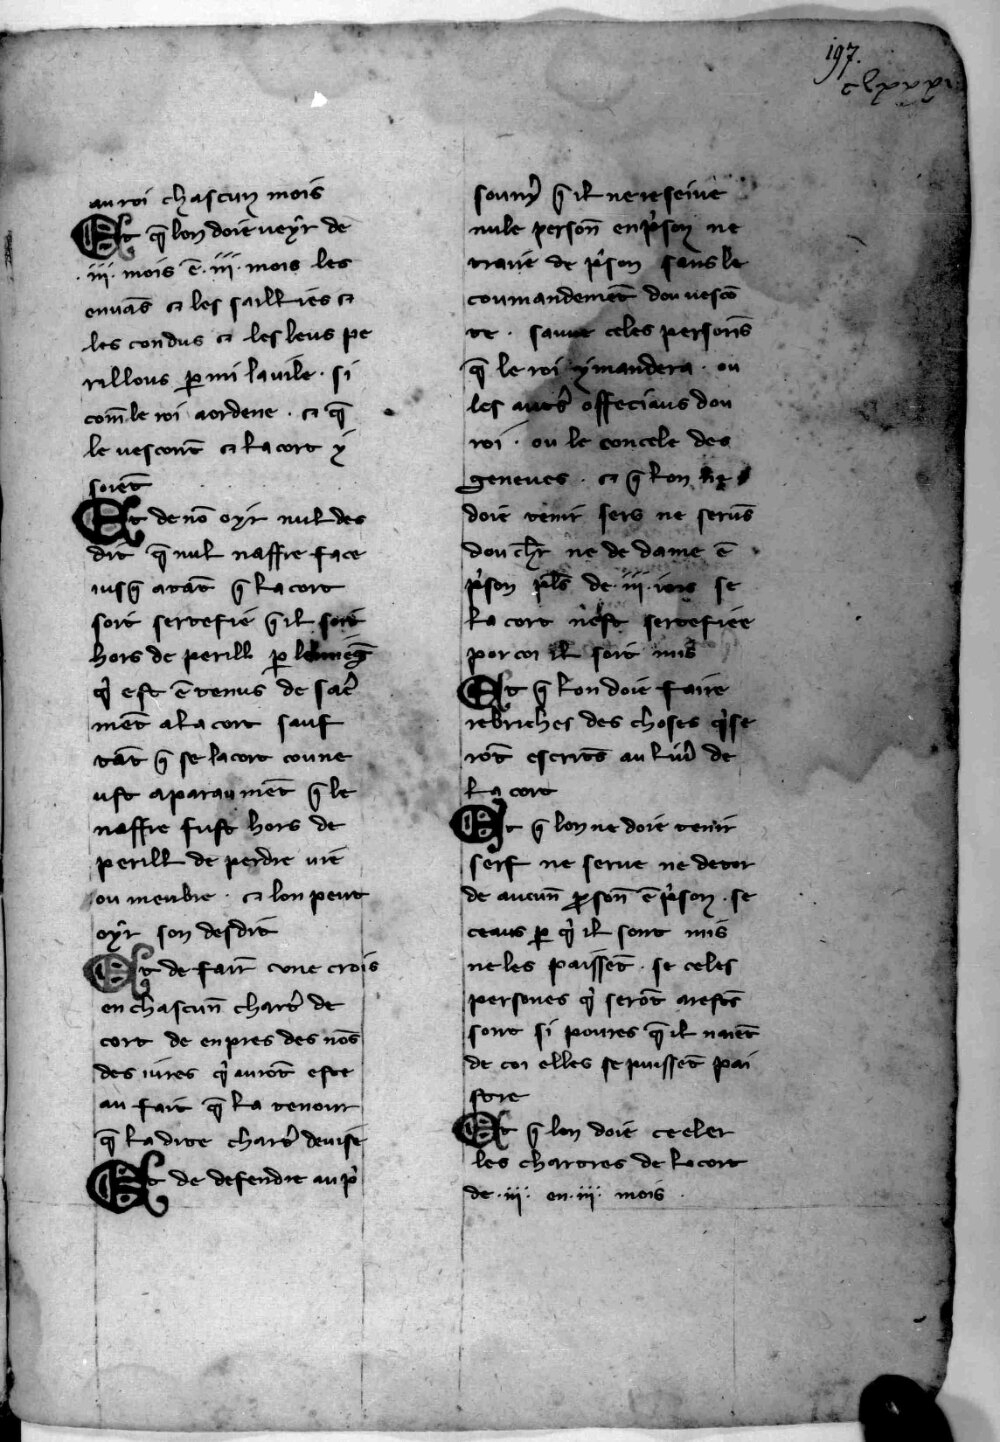 197.
au roi chascun mois
Et q̄ lon doie veyr de
.iii. mois ē .iii. mois les
envās et les saillies et
les condus et les leus pe
rillous p̄ mi la vile . si
com̄ le roi aordene . et q̄
le vescont̄ et la cort y
soiēt
Et de nō oyr nul des
dit q̄ nul naffre face
iusq̄ atāt q̄ la cort
soit sertefie q̄ il soit
hors de perill p̄ le
q' est ētenus de sac'
mēt a la cort sauf
tāt q̄ se la cort coune
ust aparaumēt q̄ le
naffre fust hors de
perill de perdre vie
ou menbre . et lon peut
oyr son desdit
Et de fair̄ une crois
en chascun̄ chart' de
cort de enpres des nōs
des iures q' aurōt este
au fait q̄ la tenour
q̄ la dite chart' devise
Et de defendre au p'
souny' q̄ il ne reseive
nule person̄ en p'son ne
traie de p'son sans le
coumandemēt dou vescō
te . sauve celes personīs
q̄ le roi y mandera . ou
les autr's offeciaus dou
roi . ou le concele des
geneves . et q̄ lon ne
doie tenir sers ne servīs
dou ch̄r ne de dame ē
p'son pl̄s de .iii. iors se
la cort nest sertefiee
por coi il soit mis
Et q̄ lon doie faire
rebriches des choses q' se
rōt escrites au livr' de
la cort
Et q̄ lon ne doie tenir
serf ne serve ne detor
de aucun̄ p̄son̄ ē p'son . se
ceaus p̄ q' il sont mis
ne les paissēt . se celes
persones q' serōt arest̄s
sont si poures q̄ il naiēt
de coi elles se puissēt pai
stre
Et q̄ lon doie seeler
les chartres de la cort
de .iii. en .iii. mois .